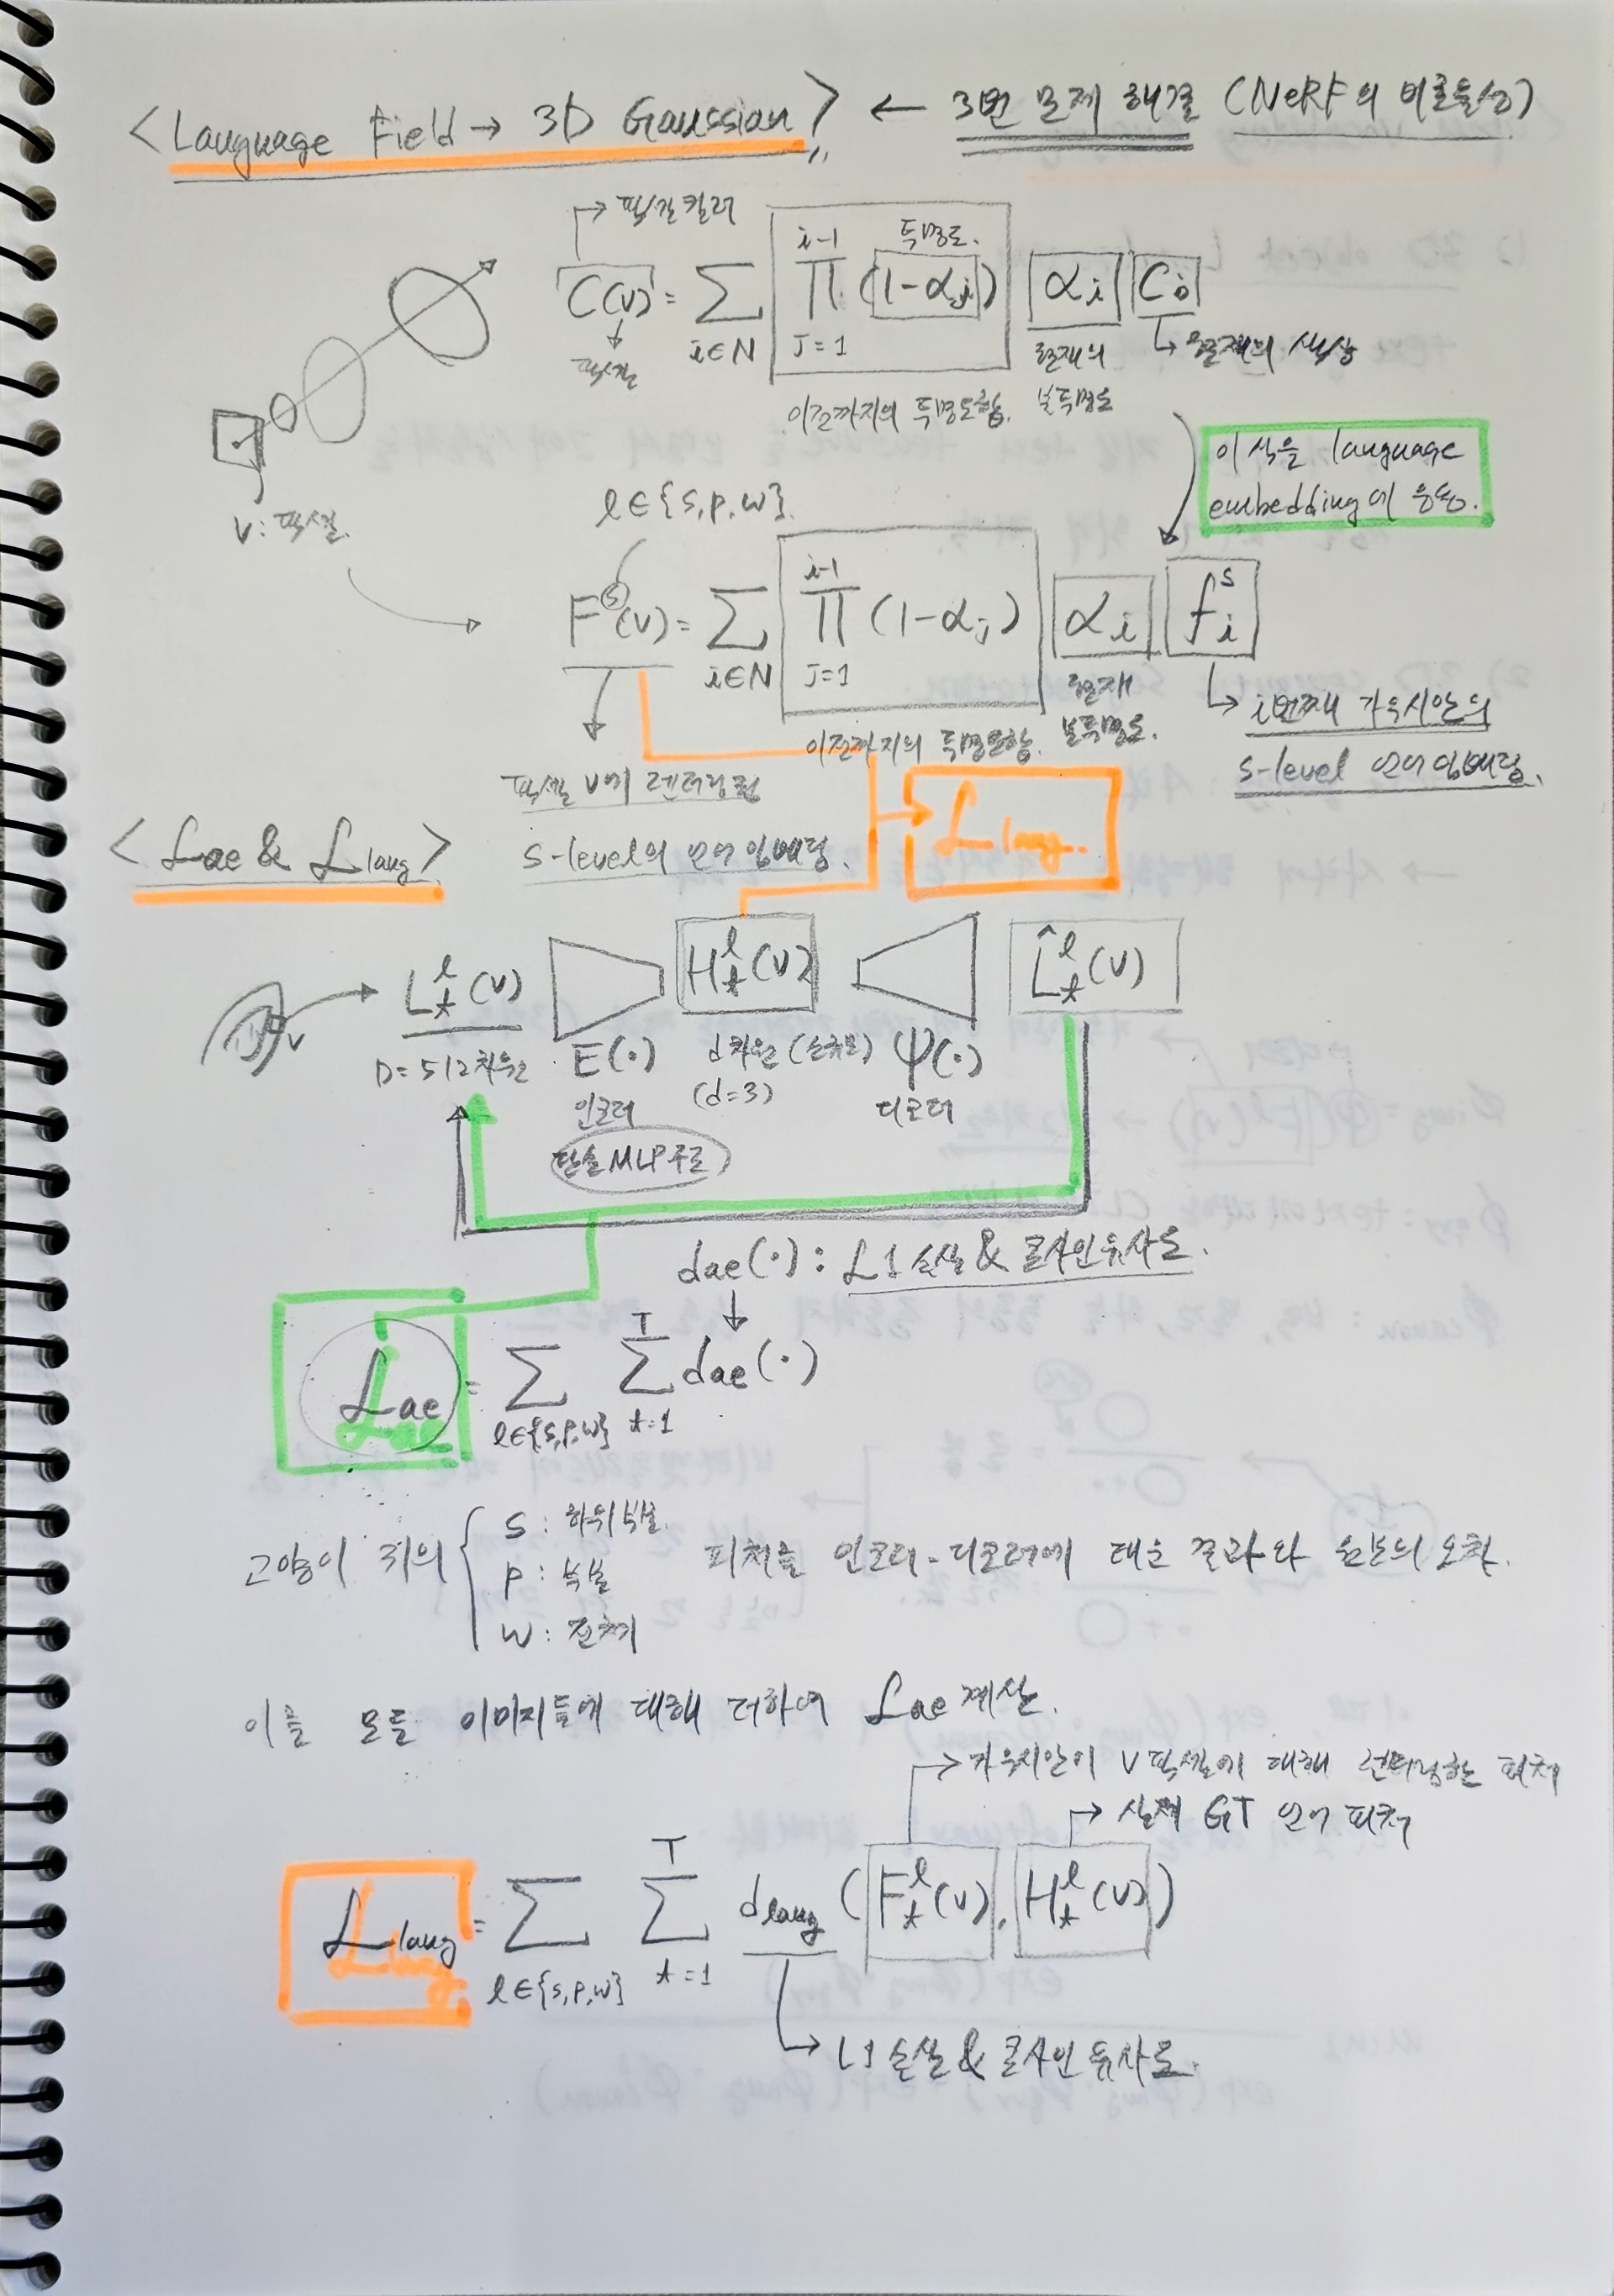 <Language Field → 3D Gaussian> ← 3번 문제 해결 (NeRF의 비효율성)
픽셀컬러
C(v) = Σ i∈N Π j=1 i-1 (1-αj) αi Ci
투명도.
픽셀
현재의 불투명도
현재의 색상
이전까지의 투명도합.
v: 픽셀.
이 식을 language
embedding에 응용.
l∈{s,p,w}.
F^s(v) = Σ i∈N Π j=1 i-1 (1-αj) αi fi^s
이전까지의 투명도합.
현재 불투명도.
i번째 가우시안의
s-level 언어 임베딩.
픽셀 v에 렌더링된
s-level의 언어 임베딩.
L lang.
<Lae & Llang>
v
L_t^l(v)
H_t^l(v)
L̂_t^l(v)
D=512차원
E(·)
인코더
단순 MLP구조
d차원 (소규모)
(d=3)
Ψ(·)
디코더
dae(·): L1 손실 & 코사인 유사도.
Lae = Σ l∈{s,p,w} Σ t=1 T dae(·)
고양이 귀의
s: 하위부분.
p: 부분
w: 전체
피처를 인코더-디코더에 태운 결과와 원본의 오차.
이를 모든 이미지들에 대해 더하여 Lae 계산.
가우시안이 v픽셀에 대해 렌더링하는 피처
실제 GT 언어 피처
Llang = Σ l∈{s,p,w} Σ t=1 T dlang (F_t^l(v), H_t^l(v))
L1 손실 & 코사인 유사도.